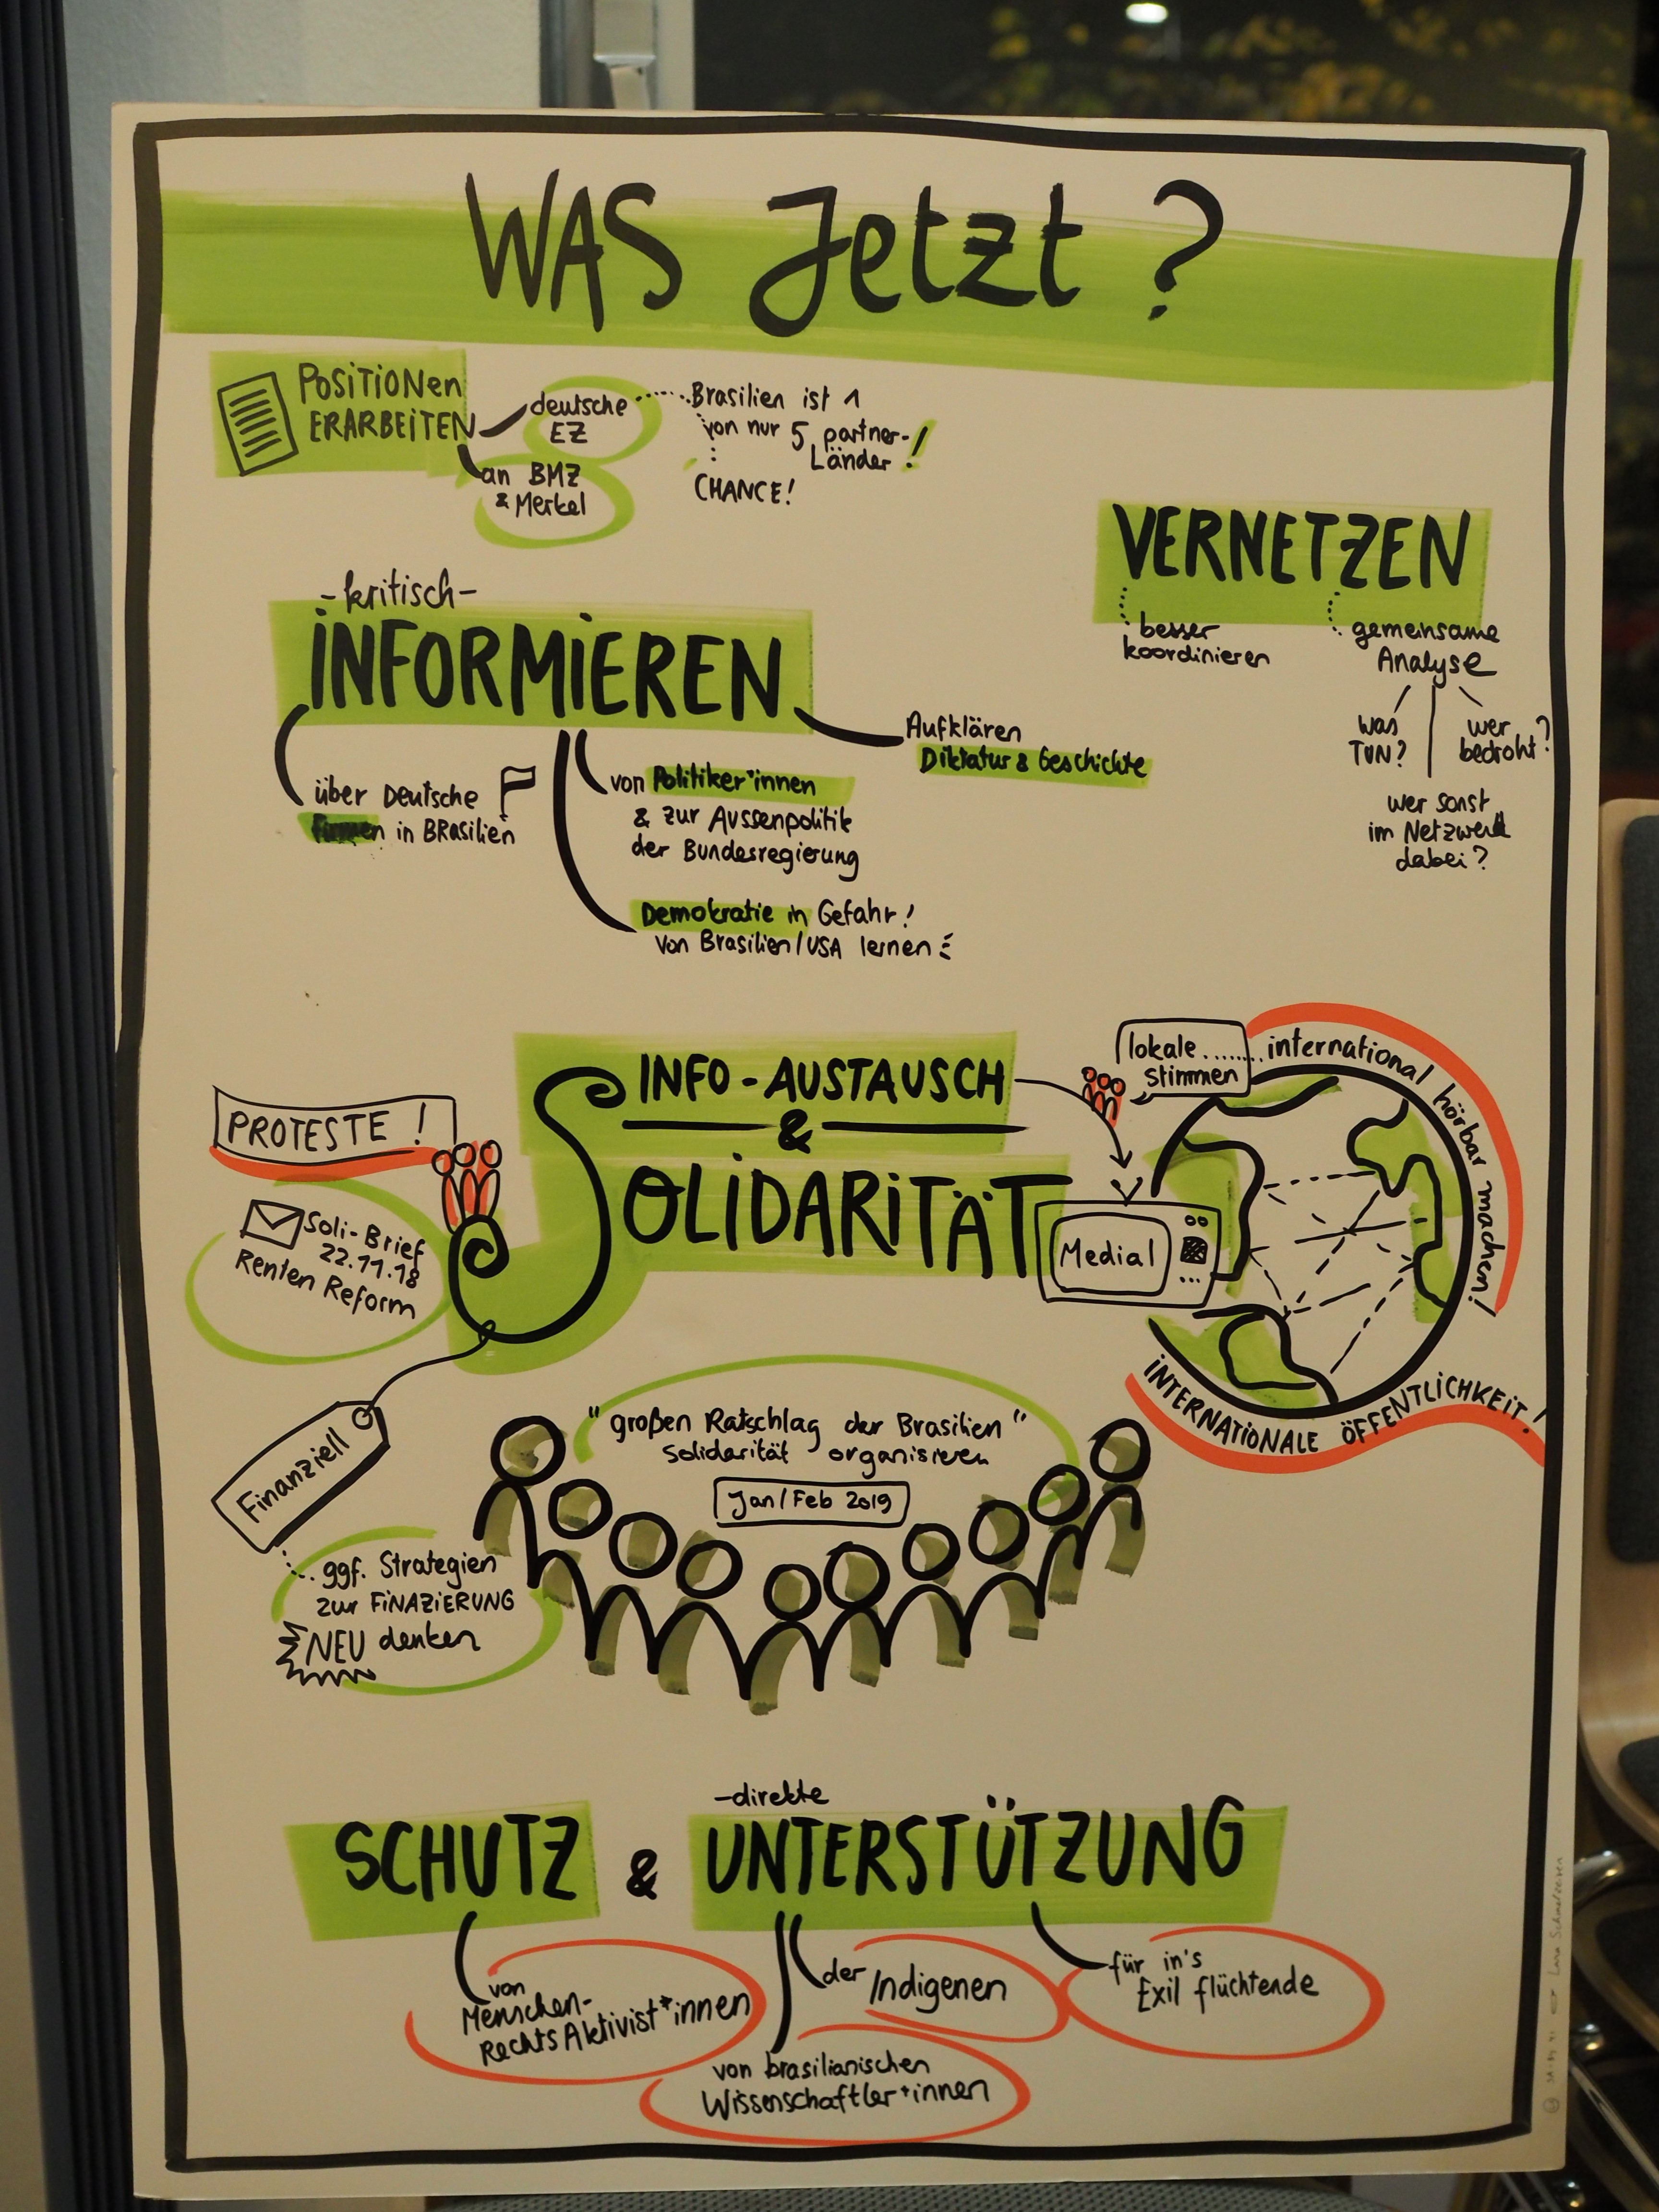 WAS Jetzt?
POSITIONEN
ERARBEITEN
deutsche
EZ
an BMZ
& Merkel
Brasilien ist 1
von nur 5 partner-
Länder!
CHANCE!
VERNETZEN
besser
koordinieren
gemeinsame
Analyse
was
TUN?
wer
bedroht?
wer sonst
im Netzwerk
dabei?
-kritisch-
INFORMIEREN
über Deutsche
Firmen in BRasilien
von Politiker*innen
& zur Aussenpolitik
der Bundesregierung
Demokratie in Gefahr!
Von Brasilien/USA lernen
Aufklären
Diktatur & Geschichte
INFO-AUSTAUSCH
&
SOLIDARITÄT
lokale........
stimmen
international hörbar machen!
Medial
INTERNATIONALE ÖFFENTLICHKEIT!
PROTESTE!
Soli-Brief
22.11.18
Renten Reform
Finanziell
ggf. Strategien
zur FINAZIERUNG
NEU denken
"großen Ratschlag der Brasilien"
Solidarität organisieren
Jan/Feb 2019
SCHUTZ &
-direkte
UNTERSTÜTZUNG
von
Menschen-
RechtsAktivist*innen
der Indigenen
von brasilianischen
Wissenschaftler*innen
für in's
Exil flüchtende